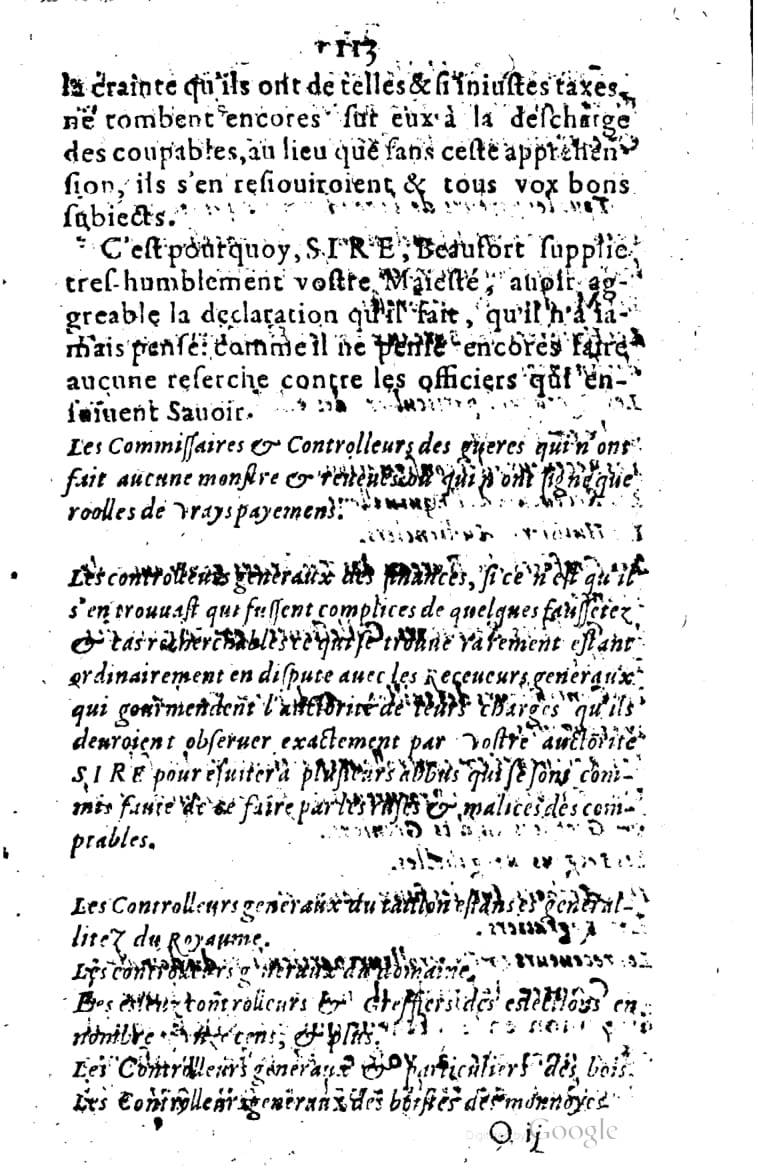 113
la crainte qu'ils ont de telles & si iniustes taxes,
ne tombent encores sur eux à la descharge
des coupables, au lieu que sans ceste apprehen-
sion, ils s'en resiouiroient & tous vox bons
subiects.
C'est pourquoy, SIRE, Beaufort supplie
tres-humblement vostre Maiesté, auoir ag-
greable la declaration qu'il fait, qu'il n'a ia-
mais pensé: comme il ne pense encores faire
aucune reserche contre les officiers qui en-
suiuent Sauoir.
Les Commissaires & Controlleurs des gueres qui n'ont
fait aucune monstre & qui n'ont signé que
roolles de vrays payemens.
Les controlleurs generaux des finances, si ce n'est qu'il
s'en trouuast qui fussent complices de quelques faussetez
& cas recherchables ce qui se trouue rarement estant
ordinairement en dispute auec les Receueurs generaux
qui gourmendent l'authorité de leurs charges qu'ils
deuroient obseruer exactement par vostre auctorité
SIRE pour esuiter à plusieurs abbus qui se sont com-
mis faute de ce faire par les ruses & malices des com-
ptables.
Les Controlleurs generaux du taillon es general-
litez du Royaume.
Les controlleurs generaux du domaine.
Des esleuz controlleurs & Greffiers des eslections en
nombre cens, & plus.
Les Controlleurs generaux & particuliers des bois.
Les Controlleurs generaux des boistes des monnoyes
O ij
Digitized by Google